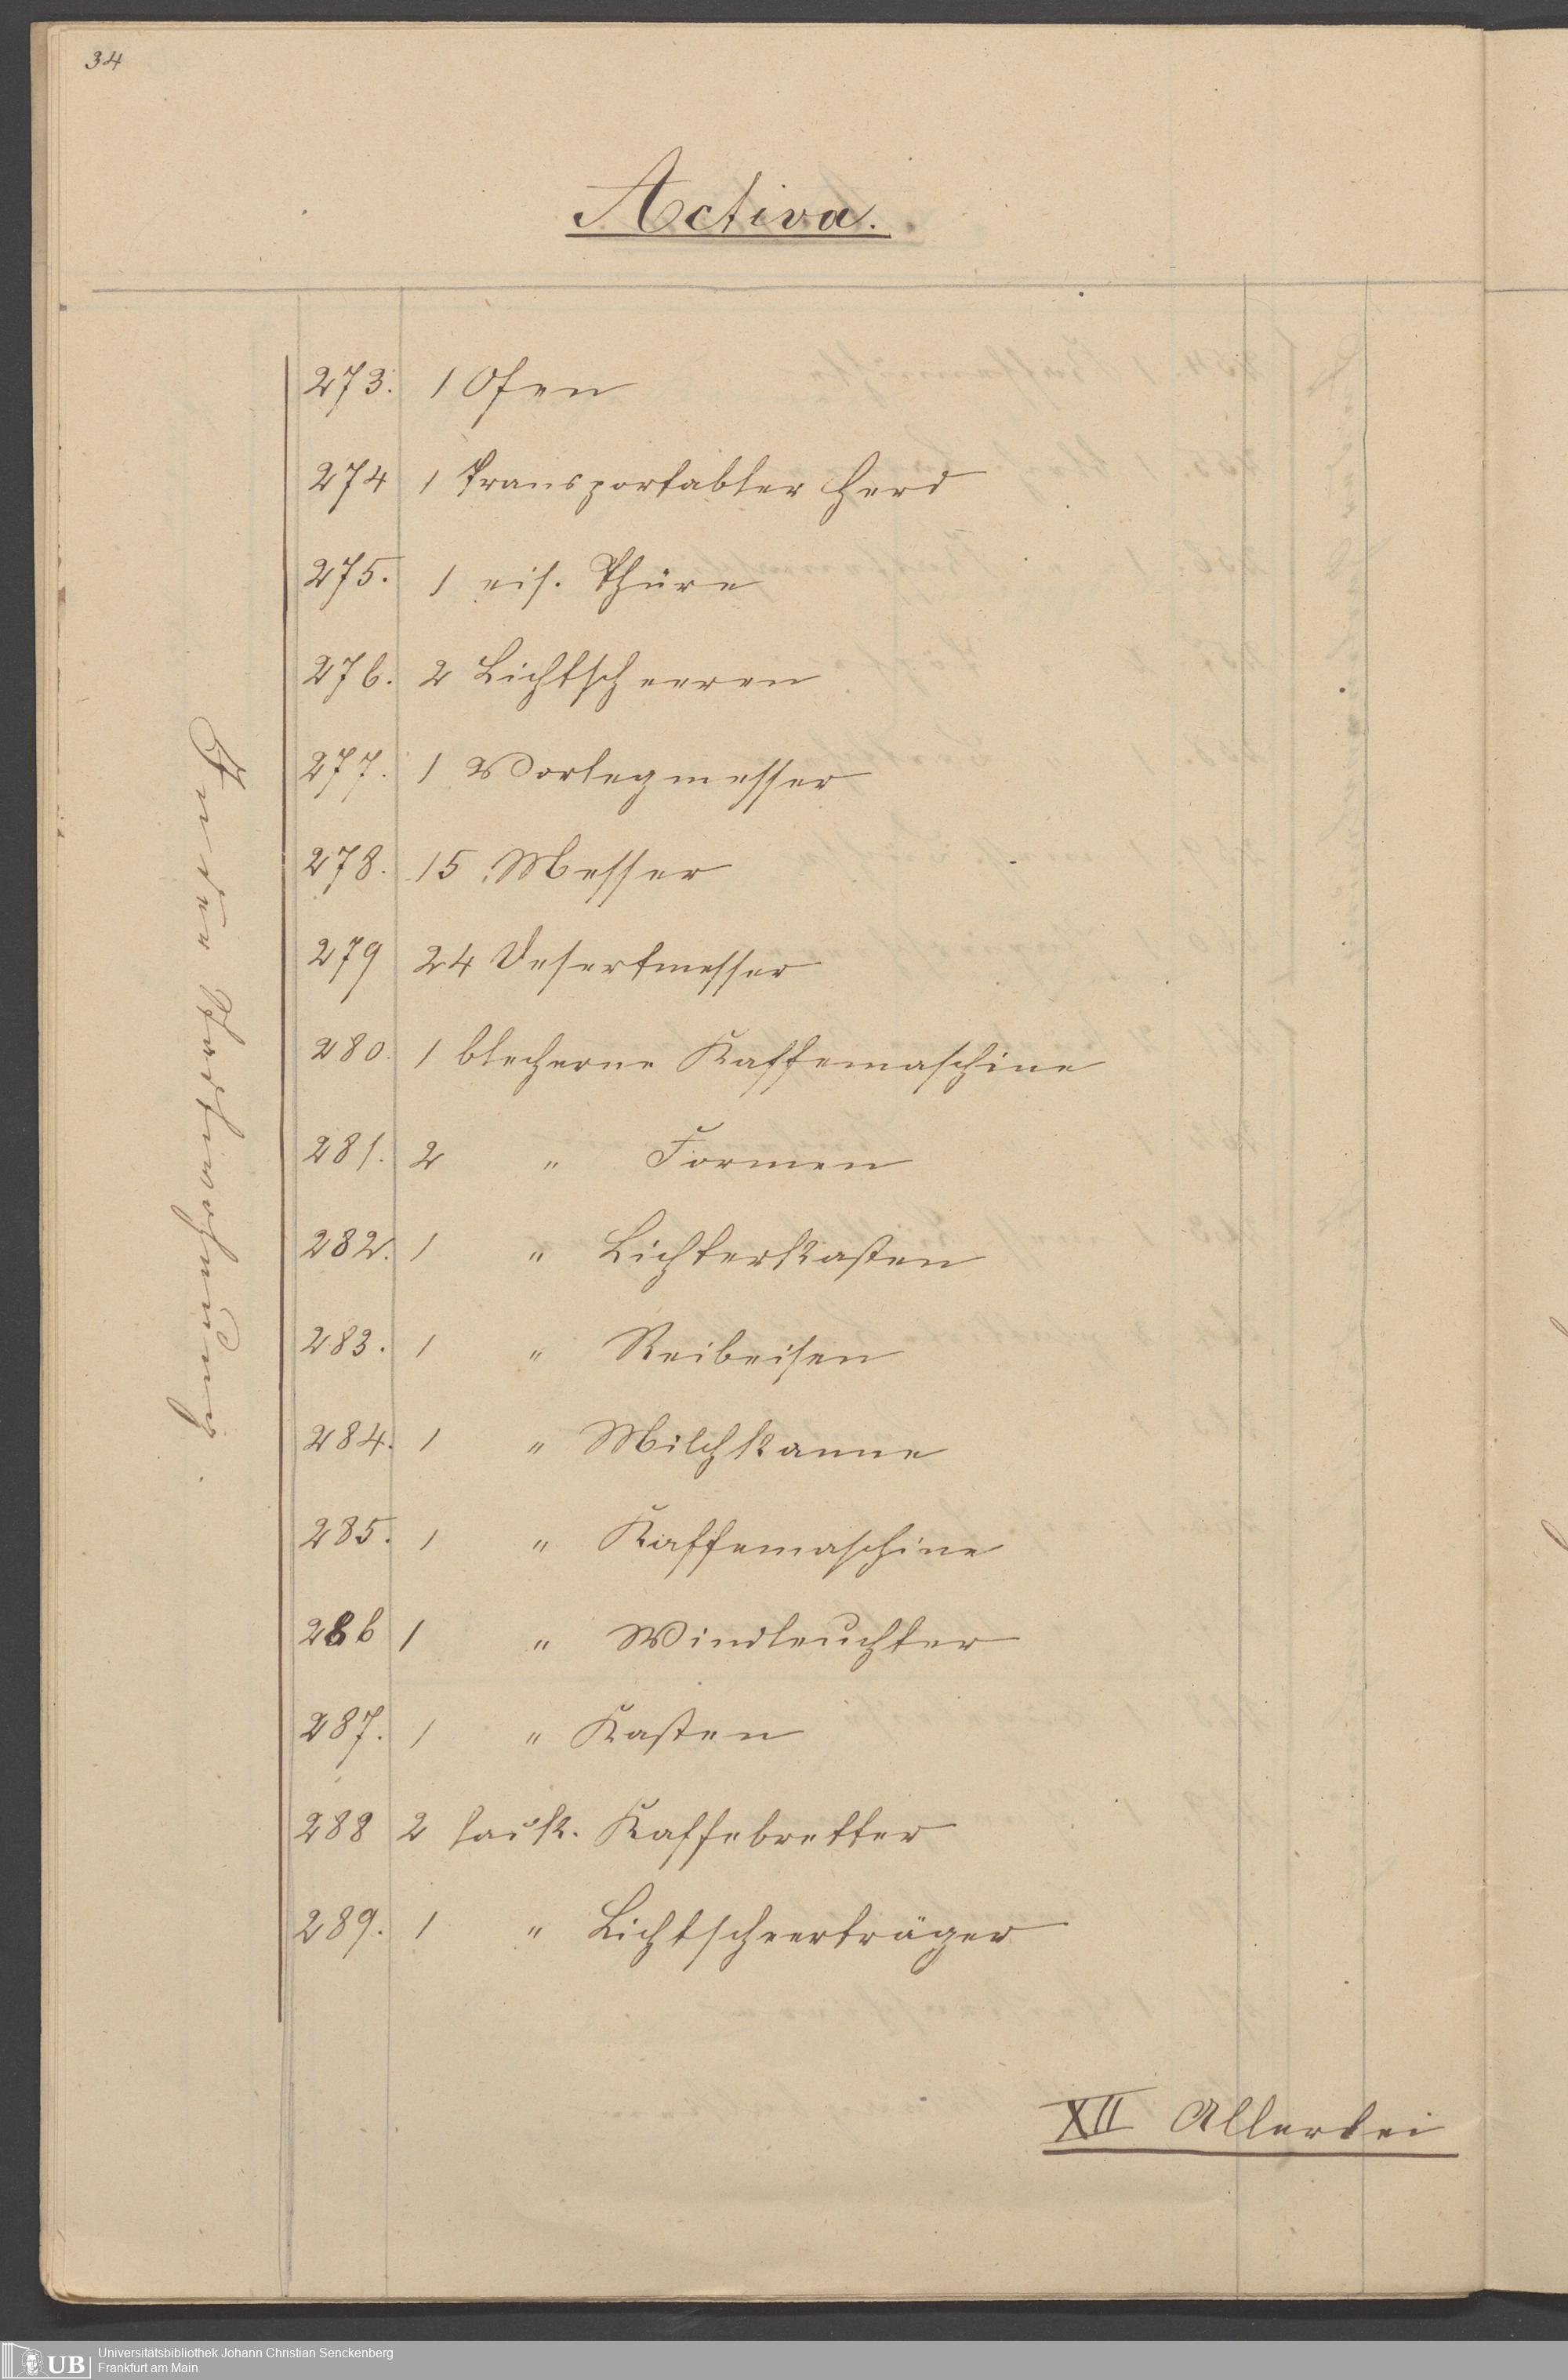 34
Activa.
273. 1 Ofen
274 1 Transportabler Herd
275. 1 eis. Thüre
276. 2 Lichtscheeren
277. 1 Vorlegmesser
278. 15 Messer
279 24 Desertmesser
280. 1 blecherne Kaffemaschine
281. 2 " Formen
282. 1 " Lichterkasten
283. 1 " Reibeisen
284. 1 " Milchkanne
285. 1 " Kaffemaschine
286 1 " Windleuchter
287. 1 " Kasten
288 2 lack. Kaffebretter
289. 1 " Lichtscheerträger
XII Allerlei
Universitätsbibliothek Johann Christian Senckenberg
Frankfurt am Main
UB